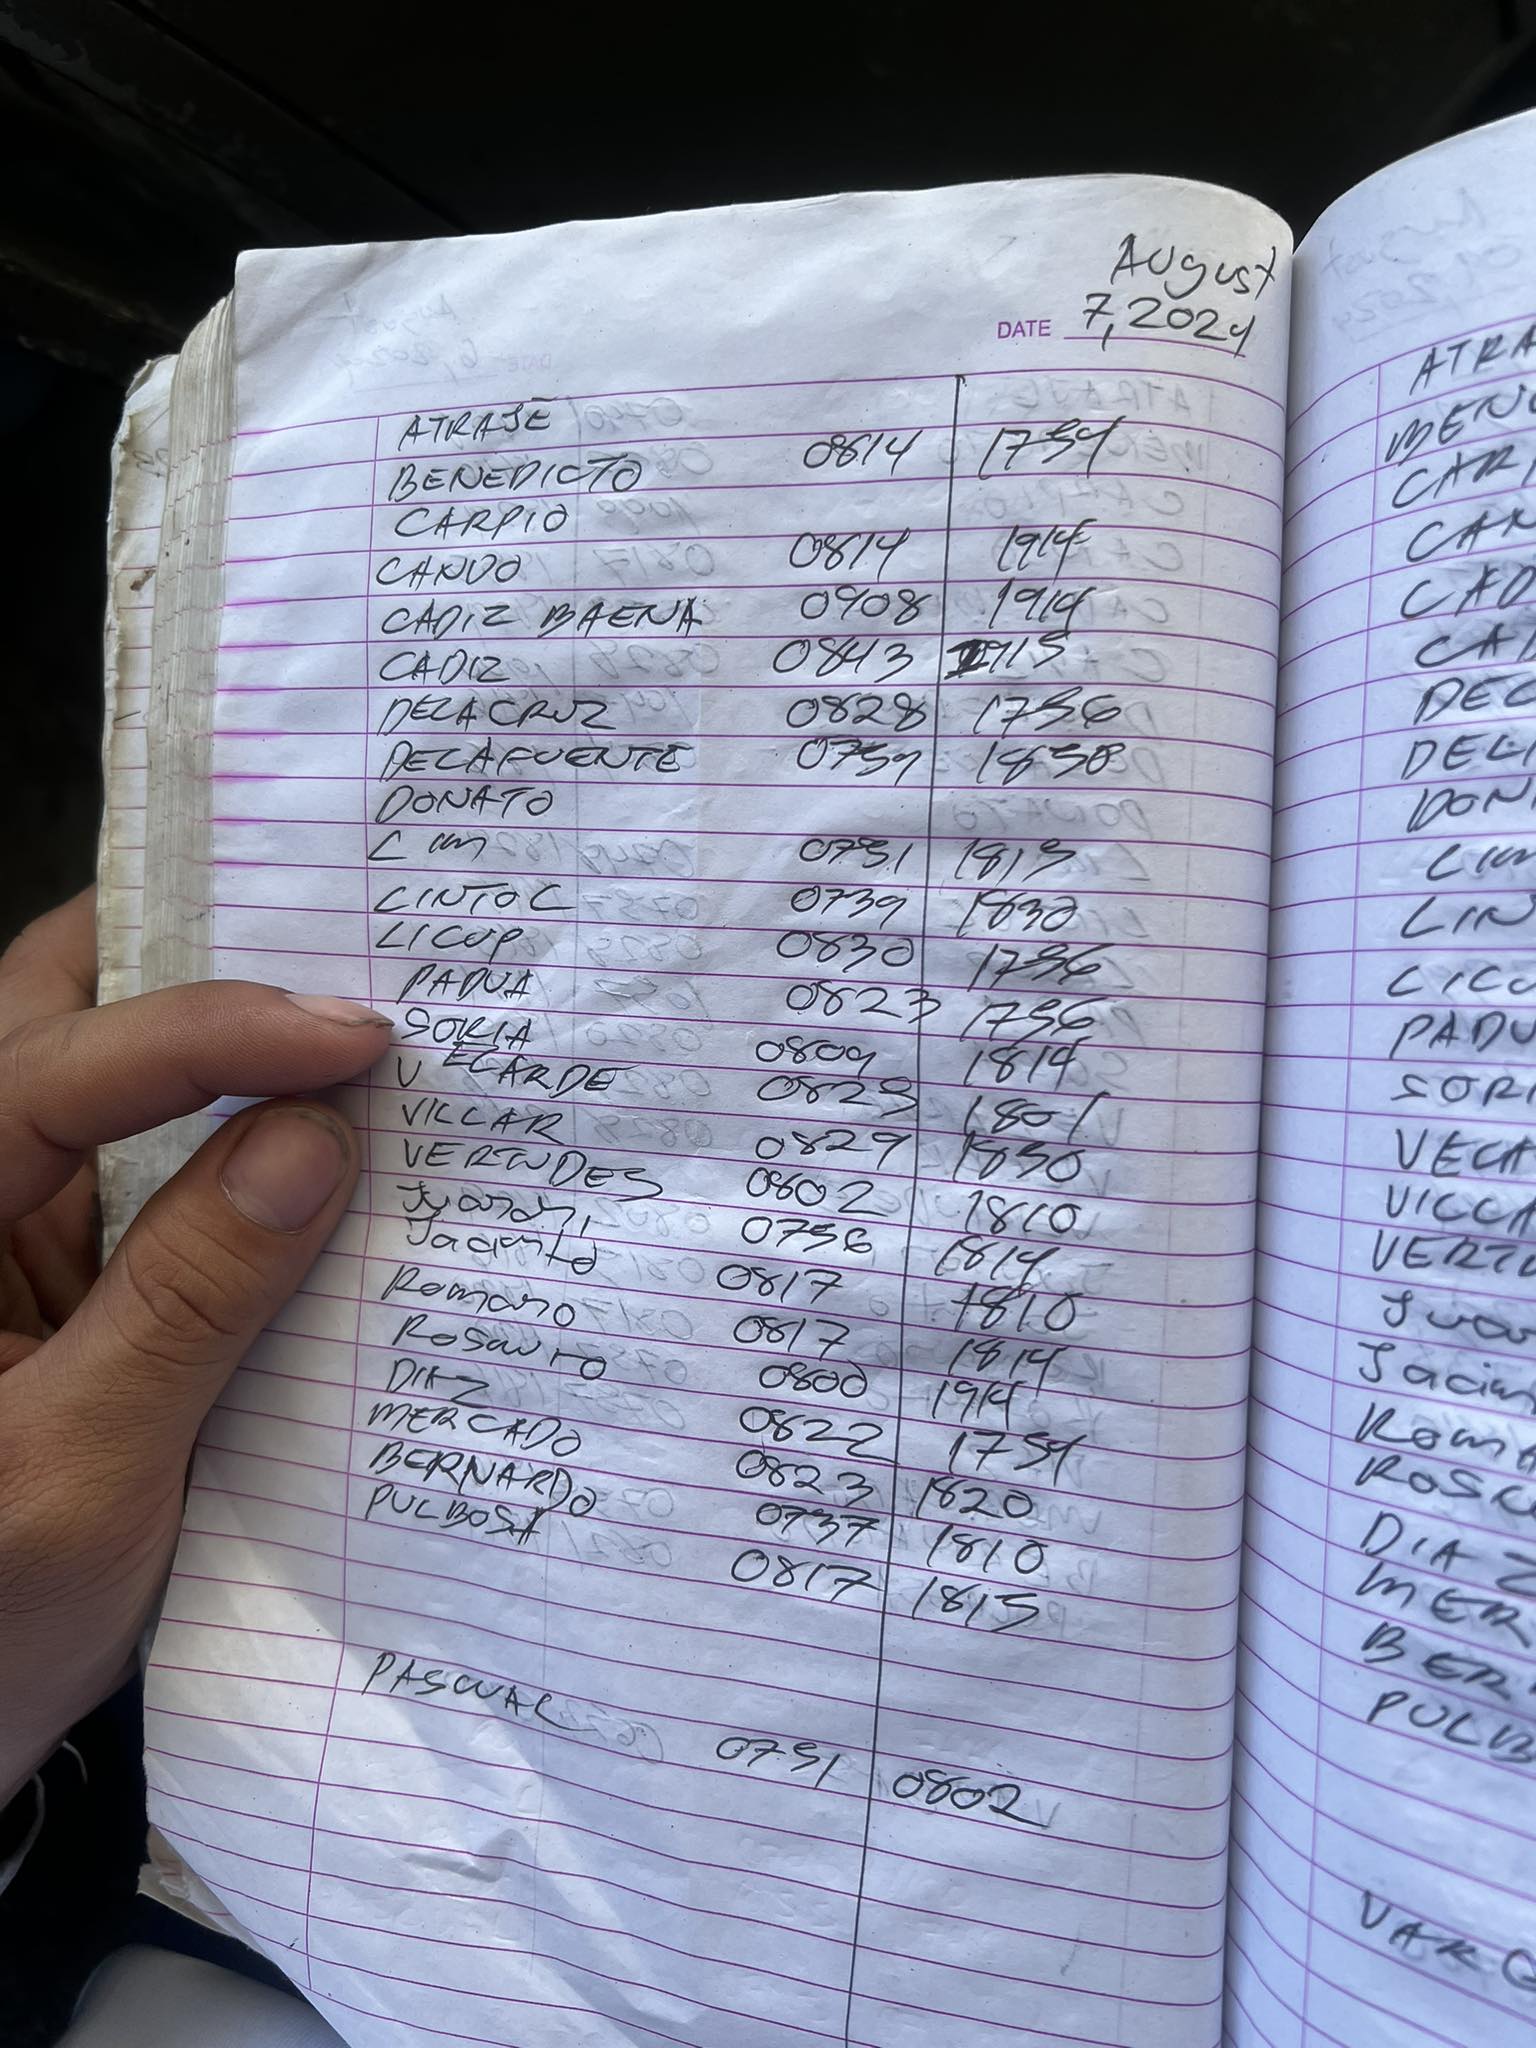 August
DATE 7, 2024
ATRAJE
BENEDICTO 0814 1754
CARPIO
CANDO 0814 1914
CADIZ BAENA 0908 1914
CADIZ 0843 1915
DELACRUZ 0828 1756
DELAFUENTE 0759 1830
DONATO
Lim 0751 1815
LINTOC 0739 1830
LICUP 0830 1756
PADUA 0823 1756
SORIA 0809 1814
VELARDE 0825 1801
VILLAR 0829 1830
VERTUDES 0802 1810
0756 1814
Jacinto 0817 1810
Romano 0817 1814
Rosauro 0800 1914
DIAZ 0822 1754
MERCADO 0823 1820
BERNARDO 0737 1810
PULBOSA 0817 1815
PASCUAL 0751 0802
ATRA
BEN
CAR
CAN
CAD
CA
DEL
DEL
DON
Lim
LIN
LICU
PADU
SORI
VELA
VILLA
VERTU
Jua
Jacin
Roma
ROSA
DIAZ
MER
BER
PULB
VARG